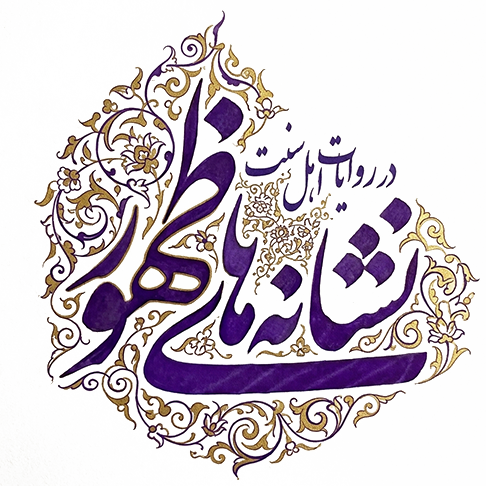 نشانه های ظهور
در روایات اهل سنت